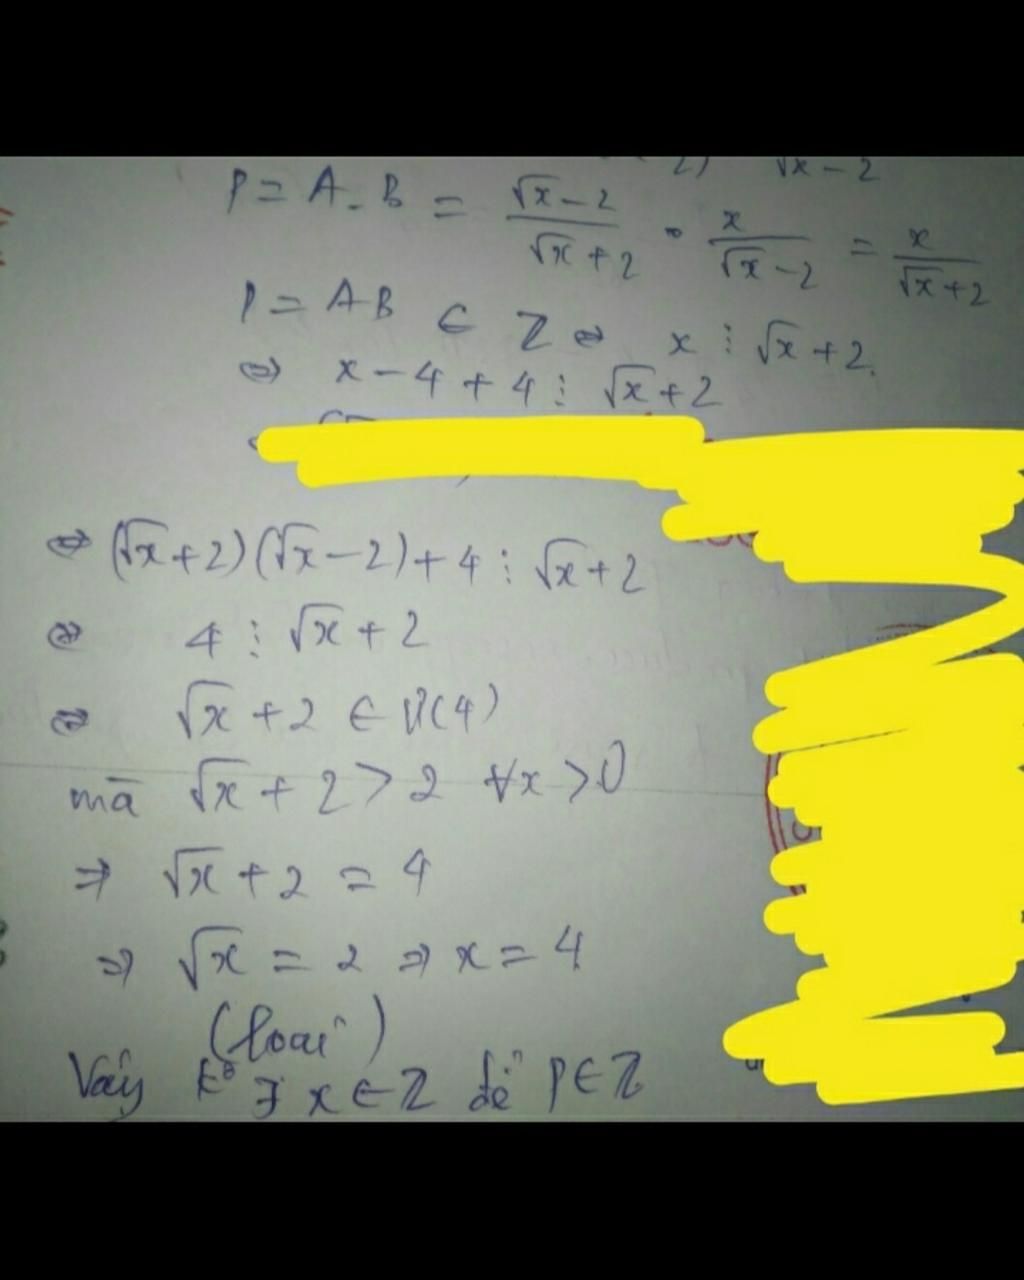 2) √x - 2
P = A . B = (√x - 2)/(√x + 2) . x/(√x - 2) = x/(√x + 2)
P = AB ∈ Z ⇔ x ⋮ √x + 2.
⇔ x - 4 + 4 ⋮ √x + 2
⇔ (√x + 2)(√x - 2) + 4 ⋮ √x + 2
⇔ 4 ⋮ √x + 2
⇔ √x + 2 ∈ Ư(4)
mà √x + 2 > 2 ∀x > 0
⇒ √x + 2 = 4
⇒ √x = 2 ⇒ x = 4
(loại)
Vậy k° ∃ x ∈ Z để P ∈ Z